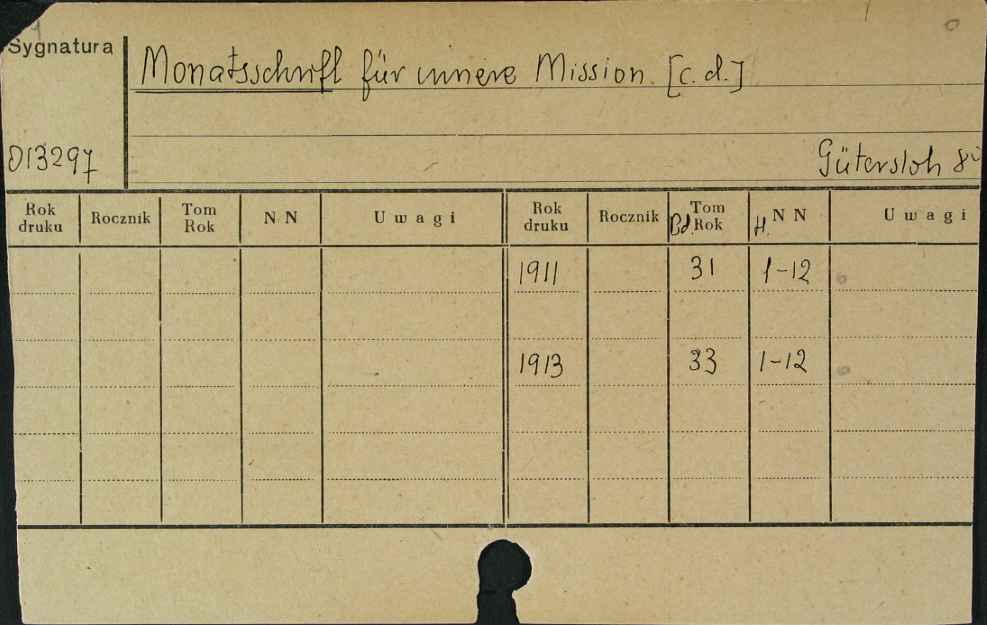 Sygnatura
Monatsschrift für innere Mission. [c.d.]
013297
Gütersloh 8°
Rok druku Rocznik Tom Rok N N Uwagi Rok druku Rocznik Bd. Tom Rok H. N N Uwagi
1911 31 1-12
1913 33 1-12